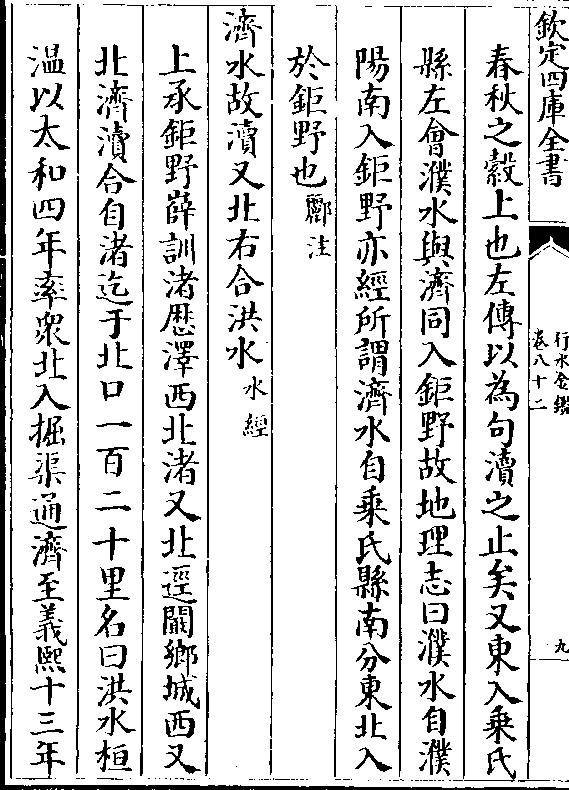 欽定四庫全書
行水金鑑
卷八十二
九
春秋之穀上也左傳以為句瀆之止矣又東入乗氏
縣左會濮水與濟同入鉅野故地理志曰濮水自濮
陽南入鉅野亦經所謂濟水自乗氏縣南分東北入
於鉅野也酈注
濟水故瀆又北右合洪水水經
上承鉅野薛訓渚歴澤西北渚又北逕闞鄉城西又
北濟瀆合自渚迄于北口一百二十里名曰洪水桓
温以太和四年率衆北入掘渠通濟至義熙十三年